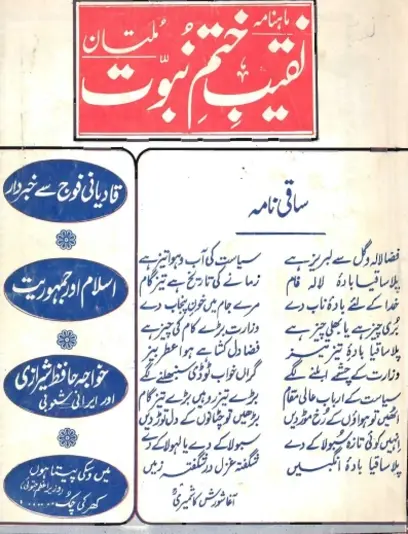 ماہنامہ
نقیبِ ختمِ نبوّت
مُلتان
ساقی نامہ
فضا لالہ و گل سے لبریز ہے
سیاست کی آب و ہوا تیز ہے
پلا ساقیا بادۂ لالہ فام
زمانے کی تاریخ ہے تیز گام
خدا کے لئے بادۂ ناب دے
مرے جام میں خونِ پنجاب دے
بُری چیز ہے یا بھلی چیز ہے
وزارت بڑے کام کی چیز ہے
پلا ساقیا بادۂ تیز
فضا دل کشا ہے ہوا عطر بیز
وزارت کے چشمے ابلنے لگے
گراں خواب ٹوڈی سنبھلنے لگے
سیاست کے اربابِ عالی مقام
بڑے تیز رو ہیں بڑے تیز گام
اٹھیں تو ہواؤں کے رُخ موڑ دیں
بڑھیں تو چٹانوں کے دل توڑ دیں
انہیں کوئی تازہ سبولا کے دے
سبولا کے دے یا لہو لا کے دے
پلا ساقیا بادۂ انگبیں
شگفتہ غزل در شگفتہ زمیں
آغا شورش کاشمیری
قادیانی فوج سے خبردار
اسلام اور جمہوریت
خواجہ حافظ شیرازی
اور ایرانی شعوبی
میں وسکی پیتا ہوں
کھر کی چُک ......